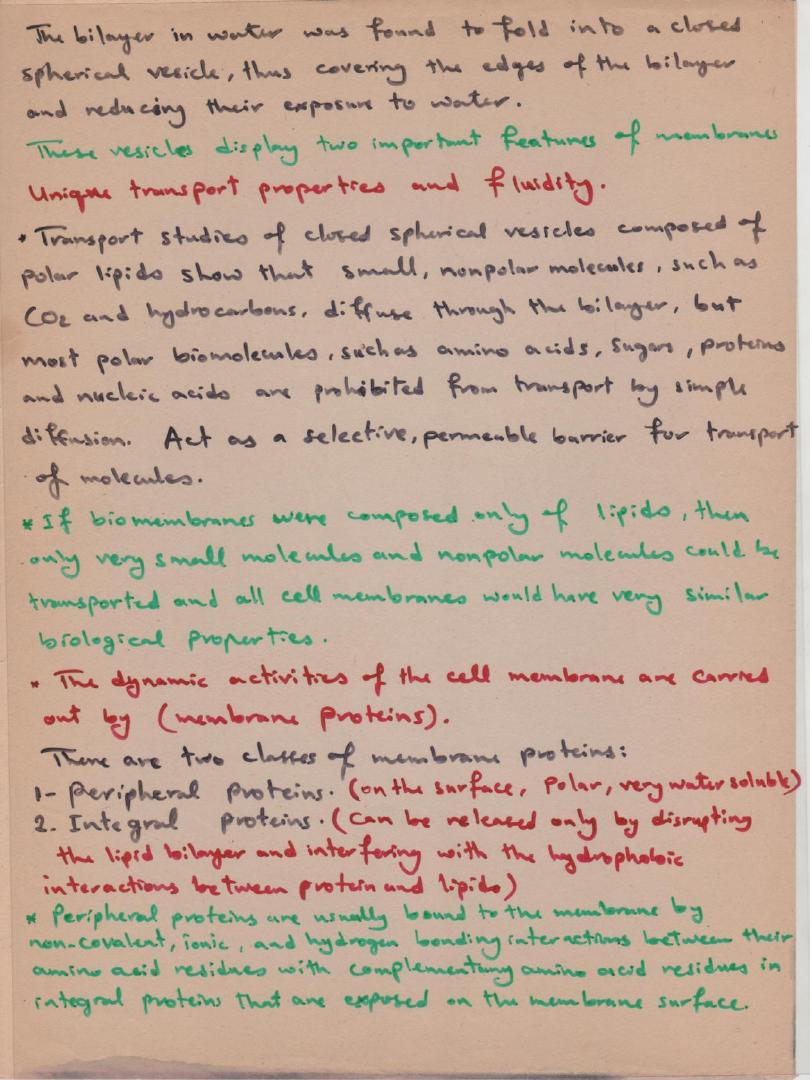 The bilayer in water was found to fold into a closed
spherical vesicle, thus covering the edges of the bilayer
and reducing their exposure to water.
These vesicles display two important features of membranes
Unique transport properties and fluidity.
* Transport studies of closed spherical vesicles composed of
polar lipids show that small, nonpolar molecules, such as
CO2 and hydrocarbons, diffuse through the bilayer, but
most polar biomolecules, such as amino acids, sugars, proteins
and nucleic acids are prohibited from transport by simple
diffusion. Act as a selective, permeable barrier for transport
of molecules.
* If biomembranes were composed only of lipids, then
only very small molecules and nonpolar molecules could be
transported and all cell membranes would have very similar
biological properties.
* The dynamic activities of the cell membrane are carried
out by (membrane proteins).
There are two classes of membrane proteins:
1- Peripheral proteins. (on the surface, Polar, very water soluble)
2. Integral proteins. (can be released only by disrupting
the lipid bilayer and interfering with the hydrophobic
interactions between protein and lipids)
* Peripheral proteins are usually bound to the membrane by
non-covalent, ionic, and hydrogen bonding interactions between their
amino acid residues with complementary amino acid residues in
integral proteins that are exposed on the membrane surface.